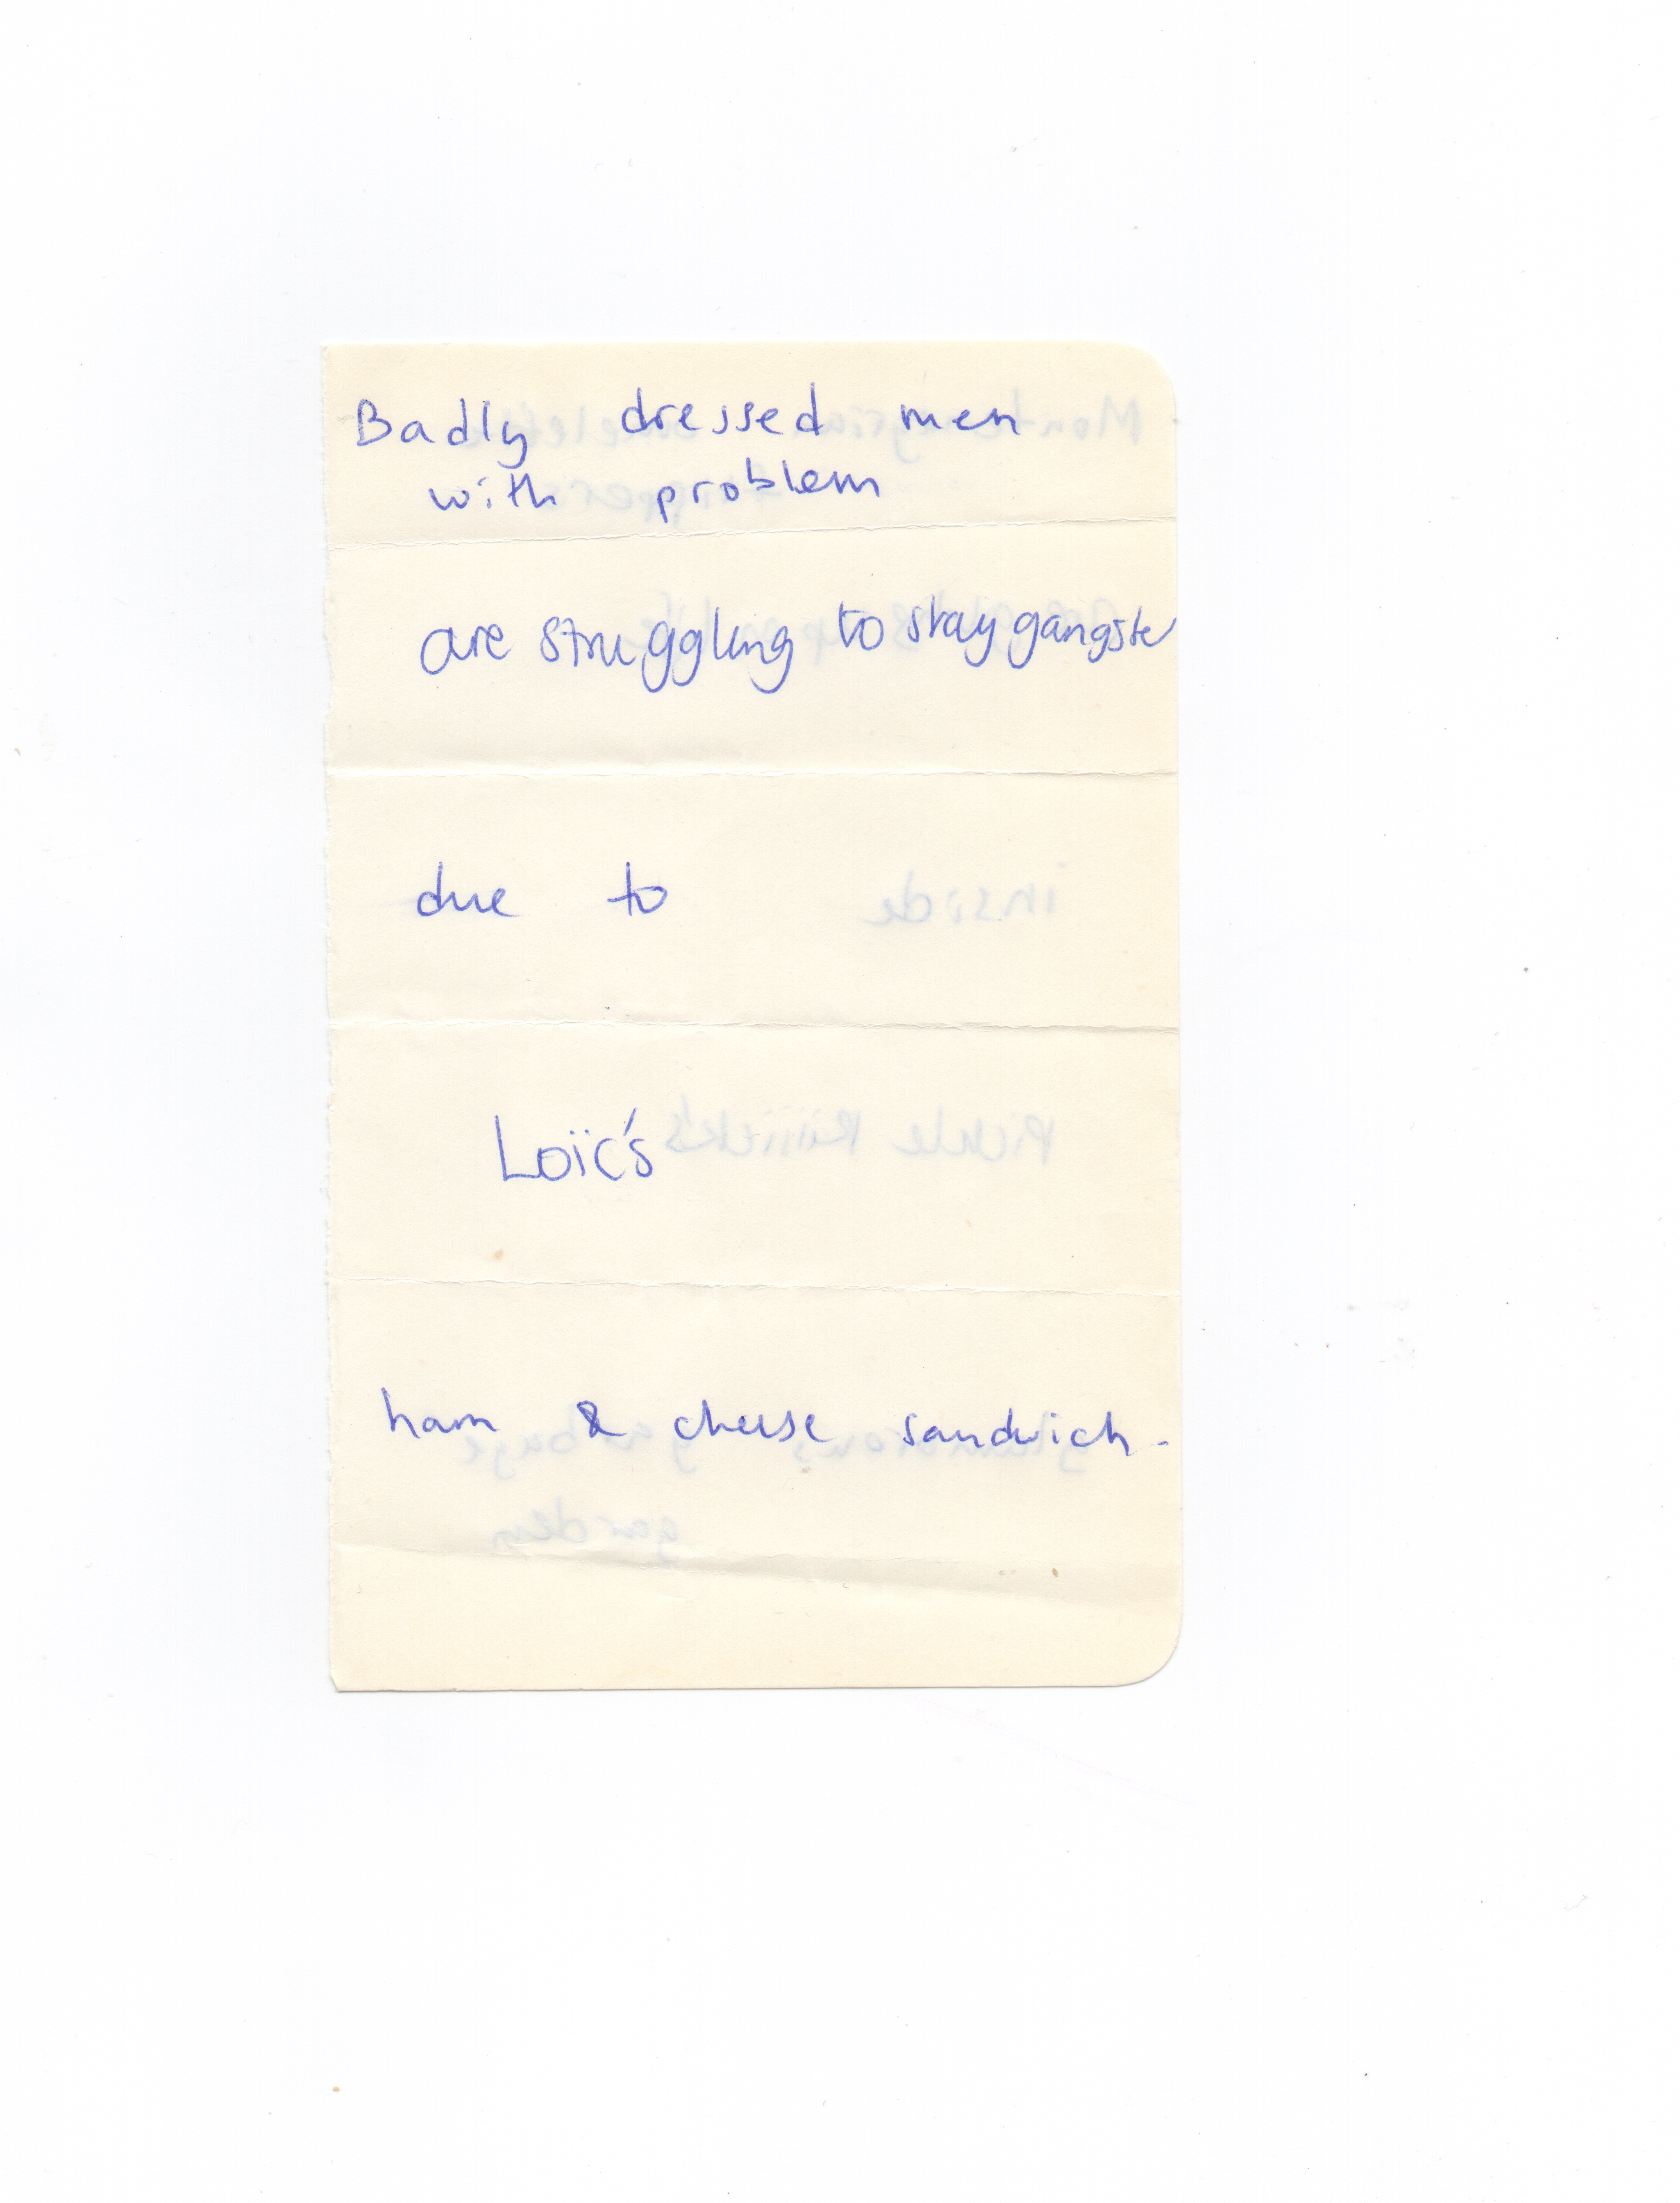 Badly dressed men
with problem
are struggling to stay gangster
due to
Loïc's
ham & cheese sandwich.